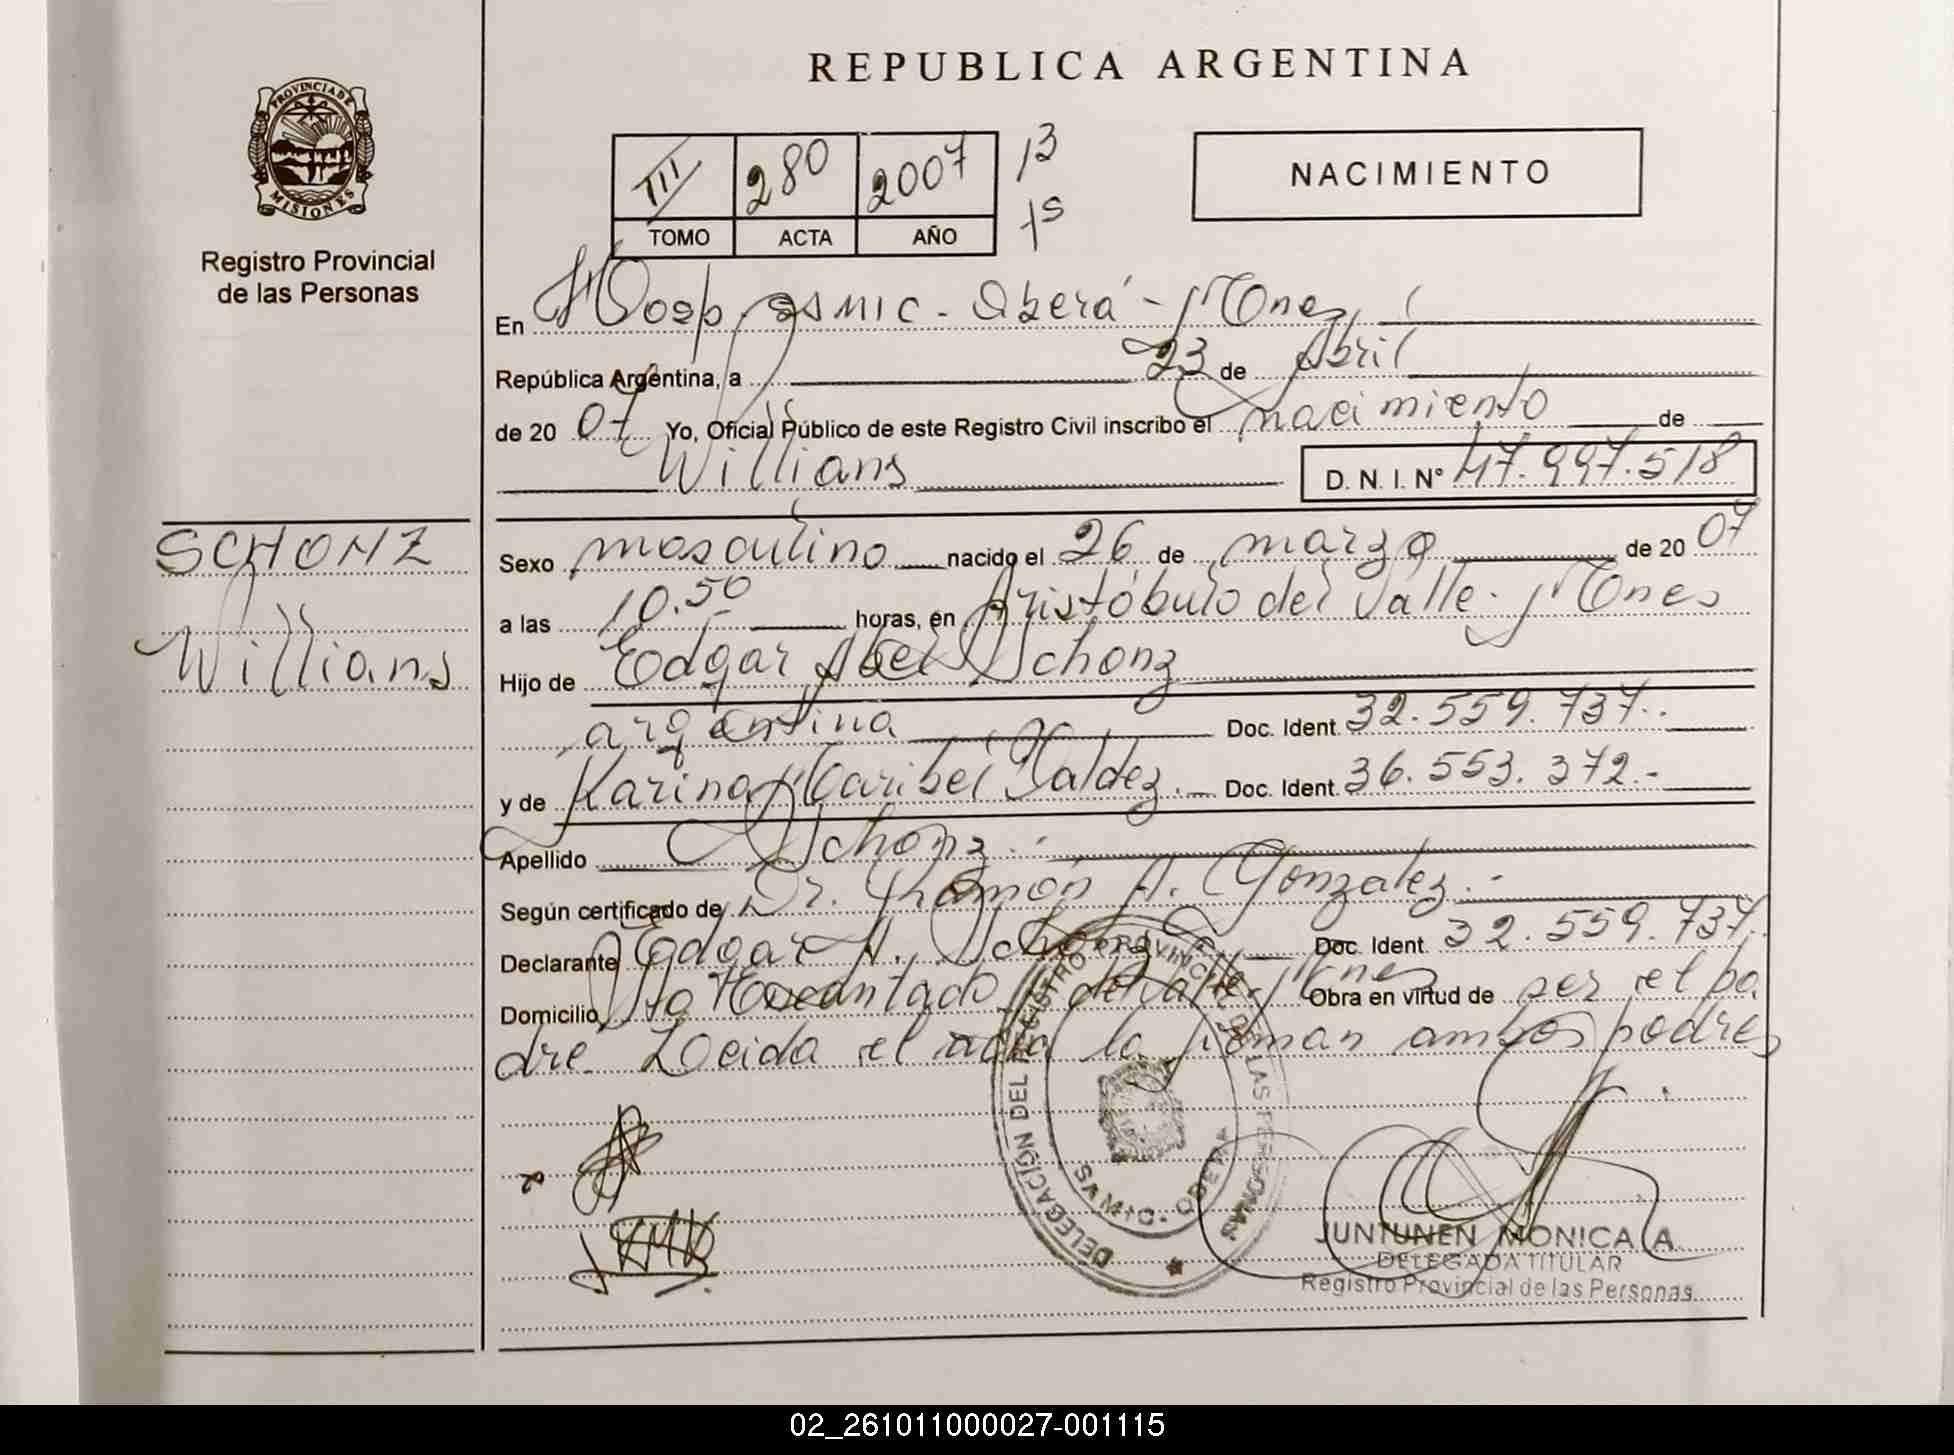 REPUBLICA ARGENTINA
PROVINCIA DE
MISIONES
Registro Provincial
de las Personas
III 280 2007 13
TOMO ACTA AÑO 15
NACIMIENTO
En Hosp. SAMIC - Oberá - Mnes,
República Argentina, a 23 de Abril
de 2007 Yo, Oficial Público de este Registro Civil inscribo el nacimiento de
Willians D. N. I. Nº 47.997.518
SCHONZ
Willians
Sexo masculino nacido el 26 de marzo de 2007
a las 10.50 horas, en Aristóbulo del Valle - Mnes
Hijo de Edgar Abel Schonz
argentina Doc. Ident. 32.559.737.-
y de Karina Maribel Valdez.- Doc. Ident. 36.553.372.-
Apellido Schonz.-
Según certificado de Dr. Ramón A. Gonzalez.-
Declarante Edgar A. Schonz Doc. Ident. 32.559.737.
Domicilio Encantado del Valle - Mnes Obra en virtud de ser el pa
dre. Leida el acta la firman ambos padres
DELEGACIÓN DEL REGISTRO PROVINCIAL DE LAS PERSONAS
SAMIC - OBERA
JUNTUNEN MONICA A.
DELEGADA TITULAR
Registro Provincial de las Personas
02_261011000027-001115